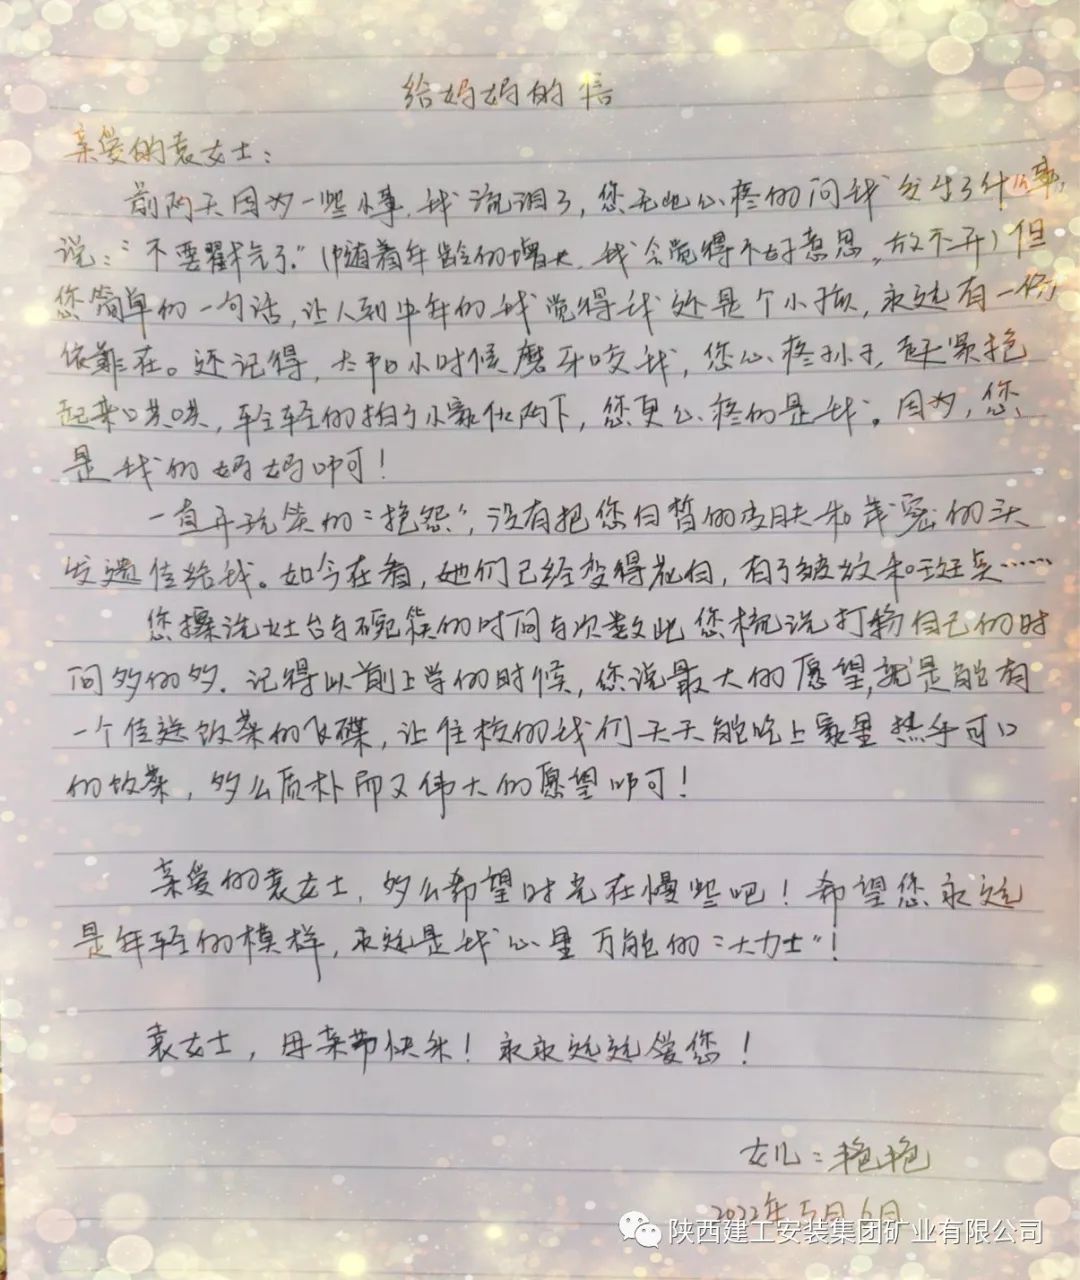 给妈妈的信
亲爱的袁女士：
前两天因为一些小事，我流泪了，您无比心疼的问我发生了什么事，
说：“不要戳气了。”（随着年龄的增大，我会觉得不好意思，放不开）但
您简单的一句话，让人到中年的我觉得我还是个小孩，永远有一份
依靠在。还记得，大和小时候磨牙咬我，您心疼孙子，赶紧抱
起来哄哄，轻轻的拍了小家伙两下，您更心疼的是我。因为，您
是我的妈妈呀！
一直开玩笑的“抱怨”，没有把您白皙的皮肤和茂密的头
发遗传给我。如今在看，她们已经变得花白，有了皱纹和斑点……
您擦洗灶台与碗筷的时间与次数比您梳洗打扮自己的时
间多的多。记得以前上学的时候，您说最大的愿望，就是能有
一个传送饭菜的飞碟，让住校的我们天天能吃上家里热乎可口
的饭菜，多么质朴而又伟大的愿望呀！
亲爱的袁女士，多么希望时光在慢些吧！希望您永远
是年轻的模样，永远是我心里万能的“大力士”！
袁女士，母亲节快乐！永永远远爱您！
女儿：艳艳
2022年5月6日
陕西建工安装集团矿业有限公司